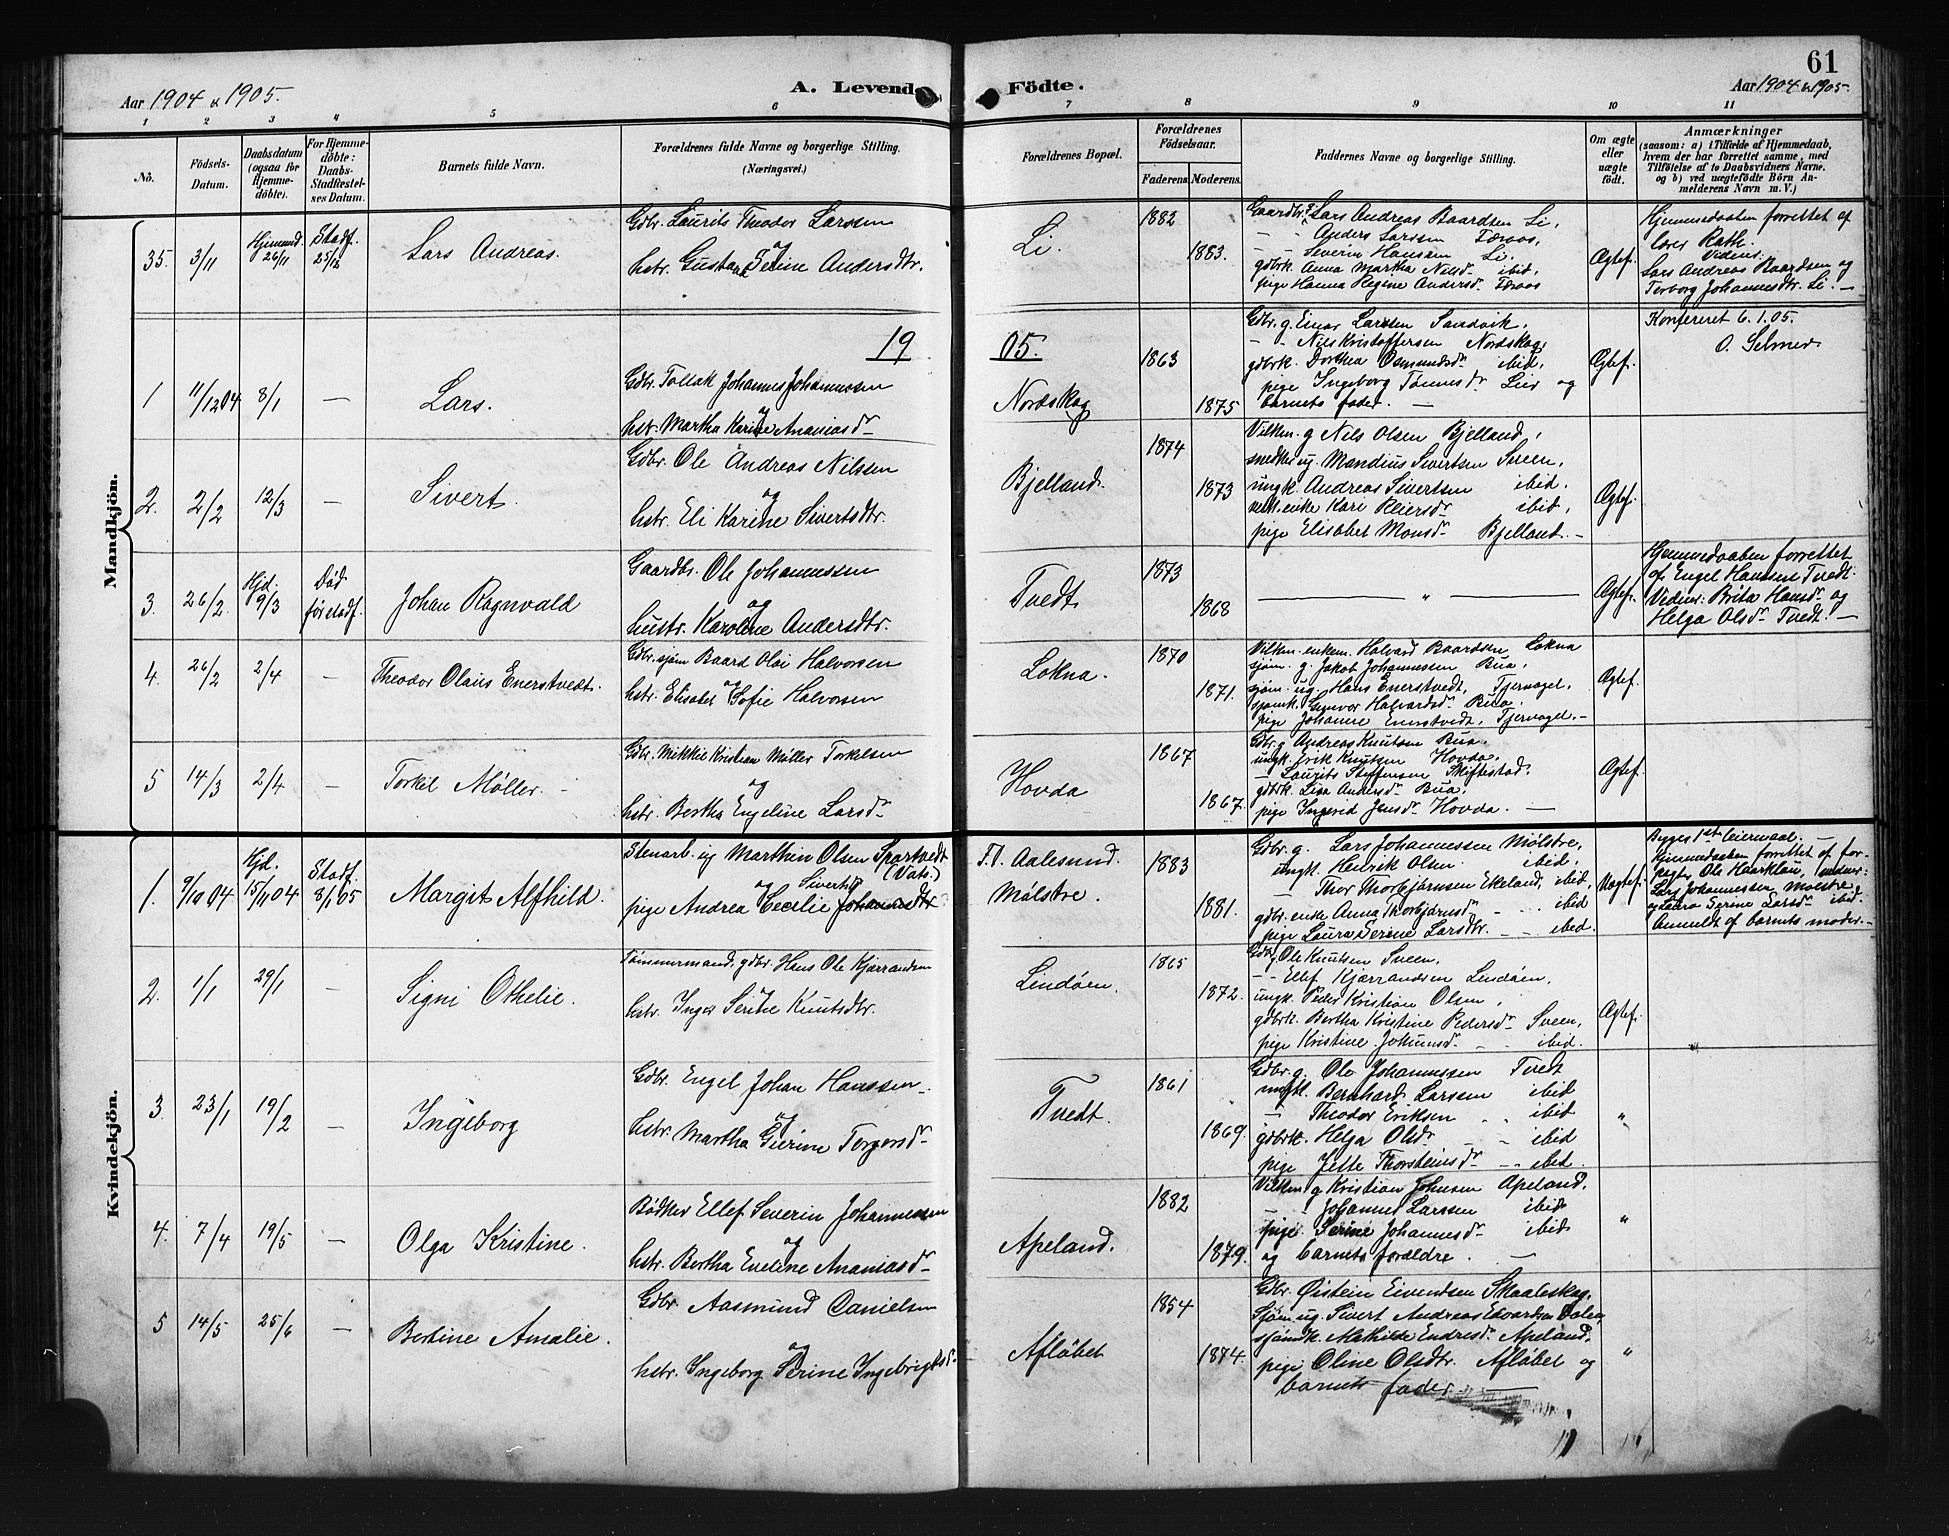 61
Aar 1904 & 1905.
A. Levende Födte.
Aar 1904 & 1905.
1 2 3 4 5 6 7 8 9 10 11
No.
Födsels-Datum.
Daabsdatum (ogsaa for Hjemmedöbte).
For Hjemmedöbte: Daabs-Stadfestelses Datum.
Barnets fulde Navn.
Forældrenes fulde Navne og borgerlige Stilling.
(Næringsvei.)
Forældrenes Bopæl.
Forældrenes Födselsaar.
Faderens. Moderens.
Faddernes Navne og borgerlige Stilling.
Om ægte eller uægte födt.
Anmærkninger
(saasom: a) i Tilfælde af Hjemmedaab, hvem der har forrettet samme, med Tilföielse af to Daabsvidners Navne, og b) ved uægtefödte Börn Anmelderens Navn m. V.)
Mandkjön.
35. 3/11 Hjemmd. 26/11 Stadf. 25/12 Lars Andreas.
Gdbr. Laurits Theodor Larssen
og
hstr. Gustava Serine Andersdtr.
Li. 1882 1883.
Gaardbr. g. Lars Andreas Baardsen Li,
- - Anders Larssen Færaas,
- - Severin Hansen Li,
gdbrk. Anna Martha Nilsd. ibid,
pige Hanna Regine Andersd. Færaas
Ægtef.
Hjemmedaaben forrettet af
lærer Rath.
Vidner:
Lars Andreas Baardsen og
Torborg Johannesdtr. Li. —
1905.
Konfereret 6.1.05.
O. Selmer
1 11/12 04 8/1 — Lars.
Gdbr. Tollak Johannes Johannessen
og
hstr. Martha Karine Ananiasdr
Nordskog 1863 1875
Gdbr. g. Einar Larssen Sandvik,
- - Nils Kristoffersen Nordskog,
gdbrk. Dorthea Osmundsdr ibid,
pige Ingeborg Tønnesdr Lier og
barnets fader. —
Ægtef.
2. 2/2 12/3 — Sivert.
Gdbr. Ole Andreas Nilsen
og
hstr. Eli Karine Sivertsdtr.
Bjelland. 1874 1873
Vilkm. g Nils Olsen Bjelland,
snedker ug. Mandius Sivertsen Sveen,
ungk. Andreas Sivertsen ibid,
vilk. enke Kari Reiersdr ibid,
pige Elisabet Monsdr Bjelland. —
Ægtef.
3. 26/2. Hjd. 9/3 Død før stadf. Johan Ragnvald
Gaardbr. Ole Johannessen
og
hustr. Karoline Andersdtr.
Tvedt 1873 1868
— " —
Ægtef.
Hjemmedaaben forrettet
af Engel Hanssen Tvedt.
Vidner: Brita Hansdr og
Helga Olsdr Tvedt. —
4. 26/2 2/4 — Theodor Olaus Enerstvedt.
Gdbr. sjøm Baard Olai Halvorsen
og
hstr. Elisabet Sofie Halvorsen
Lokna. 1870 1871.
Vilkm. enkem. Halvard Baardsen Lokna
sjøm. g. Jakob Johannessen Bua,
sjøm. ug. Hans Enerstvedt, Tjernagel,
sjømk. Gunvor Halvardsdr Bua,
pige Johanne Enerstvedt, Tjernagel. —
Ægtef.
5 14/3 2/4 — Torkel Møller. —
Gdbr. Mikkel Kristian Møller Torkelsen
og
hstr. Bertha Engeline Larsdr
Hovda 1867 1867.
Gdbr. g Andreas Knutsen Bua,
ungk. Erik Knutsen Hovda.
- Laurits Steffensen Skiftestad.
gdbrk. Lisa Andersdr Bua,
pige Ingerid Jensdr Hovda. —
Ægtef.
Kvindekjön.
1. 9/10 04 Hjd. 15/11 04 Stadf. 8/1 05 Margit Alfhild.
Stenarb. ug Marthin Olsen Spartvedt (Vats.)
og Sivertsd
pige Andrea Cecilie Johannesdtr
F.t. Aalesund. 1883
Mølstre. 1881.
Gdbr. g. Lars Johannessen Mølstre,
ungk. Henrik Olsen ibid,
- Thor Thorbjørnsen Ekeland, ibid,
gdbr. enke Anna Thorbjørnsdr - ibid
pige Laura Serine Larsdtr. - - ibid.
Uægtef.
Begges 1ste leiermaal. —
Hjemmedaaben forrettet af for-
piger Ole Haarklau, vidner:
Lars Johannessen Mølstre
og Laura Serine Larsdr ibid.
Anmeldt af barnets moder. —
2. 1/1 29/1 — Signi Othelie.
Tømmermand, gdbr. Hans Ole Kjærrandsen
hstr. Inger Serine Knutsdtr.
Lindøen. 1865 1872.
Gdbr. g Ole Knutsen Sveen,
- - Ellef Kjærrandsen Lindøen,
ungk. Peder Kristian Olsen,
gdbrk. Bertha Kristine Pedersdr Sveen,
pige Kristine Johannsdr - - ibid.
Ægtef.
3. 23/1 19/2 — Ingeborg
Gdbr. Engel Johan Hanssen
og
hstr. Martha Gurine Torgersdr
Tvedt. 1861 1869.
Gdbr. g. Ole Johannessen Tvedt
ungk. Bernhard Larssen ibid
- Theodor Eriksen - - ibid
gdbrk. Helga Olsdr - - ibid
pige Jette Thorsteinsdr - - ibid.
"
4. 7/4 19/5 — Olga Kristine.
Bødker Ellef Severin Johannessen
og
hstr. Bertha Eveline Ananiasdr
Apeland. 1882 1879.
Vilkm. g Kristian Johnsen Apeland.
- Johannes Larssen ibid
pige Serine Johannesdr ibid
og barnets forældre. —
"
5 14/5 25/6 — Bertine Amalie.
Gdbr. Aasmund Danielsen
og
hstr. Ingeborg Serine Ingebrigtsd.
Afløbet 1854 1874.
Gdbr. Øistein Eivendsen Skaaleskog,
Sjøm ug. Sivert Andreas Edvardsen Dalen,
sjømk. Mathilde Endresdr Apeland,
pige Oline Olsdtr. Afløbet og
barnets fader. —
"